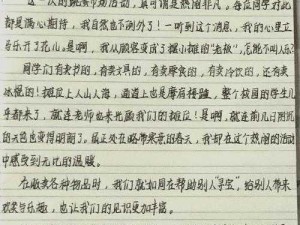 这一次的跳蚤市场活动，真可谓是热闹非凡。每位同学对此
都是满心期待，我自然也不例外了！一听到这个消息，我的心里立
马乐开了花儿。是啊，我从顾客变成了摆小摊的“老板”，怎能不叫人
同学们有卖书的，有卖文具的，有卖零食的，有卖冷饮的，还有卖
冰棍的！摊位上人山人海，通道上也是摩肩接踵，整个校园的学生几
乎都来了，就连老师也来光顾我们的摊位！是啊，就连前几日阴沉
的天色也变得明朗了。虽正处在略带寒意的春天，我却在这个热闹的活动
中感受到无比的温暖。
在贩卖各种物品时，我们就如同在帮助别人“寻宝”，给别人带来
欢笑与乐趣，也让我们的见识更加丰富。